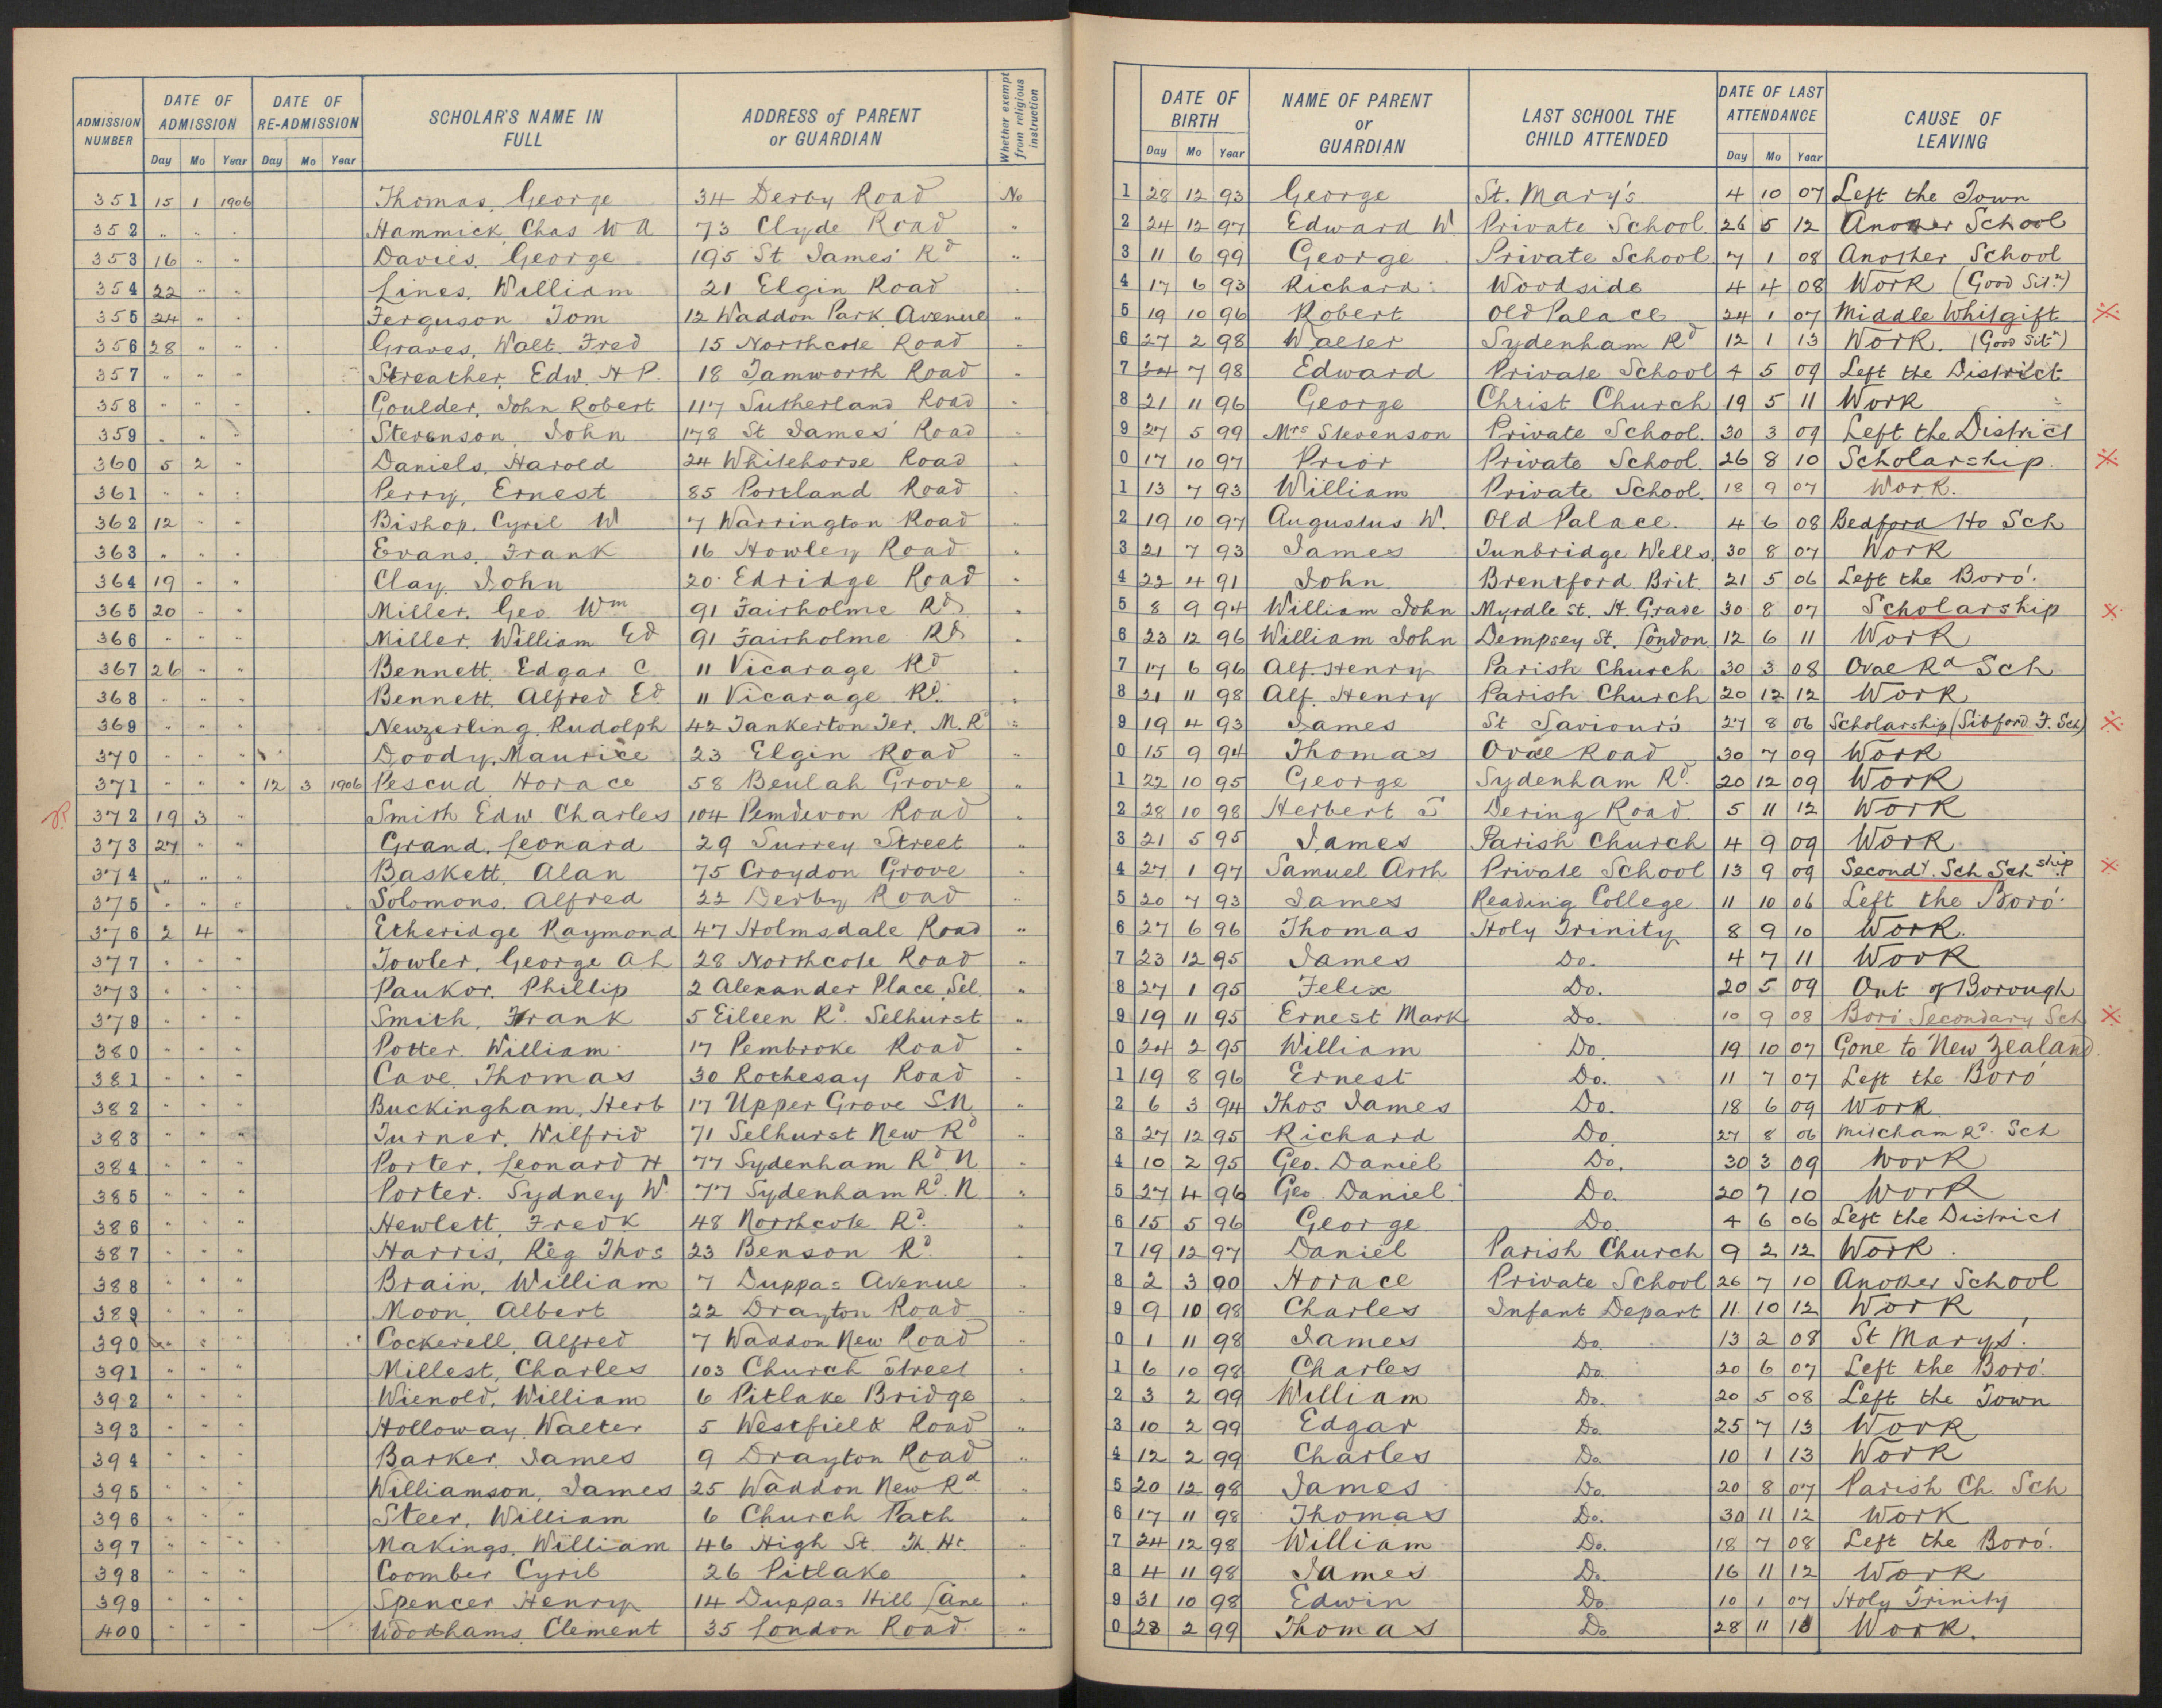 ADMISSION NUMBER | DATE OF ADMISSION Day Mo Year | DATE OF RE-ADMISSION Day Mo Year | SCHOLAR'S NAME IN FULL | ADDRESS of PARENT or GUARDIAN | Whether exempt from religious instruction
351 15 1 1906 Thomas, George 34 Derby Road No
352 " " " Hammick, Chas W A 73 Clyde Road "
353 16 " " Davies, George 195 St James' Rd "
354 22 " " Lines, William 21 Elgin Road "
355 24 " " Ferguson Tom 12 Waddon Park Avenue "
356 28 " " Graves, Walt. Fred 15 Northcote Road "
357 " " " Streather, Edw. H P. 18 Tamworth Road "
358 " " " Goulder, John Robert 117 Sutherland Road "
359 " " " Stevenson, John 178 St James' Road "
360 5 2 " Daniels, Harold 24 Whitehorse Road "
361 " " " Perry, Ernest 85 Portland Road "
362 12 " " Bishop, Cyril W 7 Warrington Road "
363 " " " Evans, Frank 16 Howley Road "
364 19 " " Clay, John 20 Edridge Road "
365 20 " " Miller, Geo Wm 91 Fairholme Rd "
366 " " " Miller, William Ed 91 Fairholme Rd "
367 26 " " Bennett, Edgar C 11 Vicarage Rd "
368 " " " Bennett, Alfred Ed. 11 Vicarage Rd. "
369 " " " Neuzerling, Rudolph 42 Tankerton Ter. M.Rd "
370 " " " Doody, Maurice 23 Elgin Road "
371 " " " 12 3 1906 Pescud Horace 58 Beulah Grove "
372 19 3 " Smith Edw. Charles 104 Pemdevon Road "
373 27 " " Grand, Leonard 29 Surrey Street "
374 " " " Baskett, Alan 75 Croydon Grove "
375 " " " Solomons, Alfred 22 Derby Road "
376 2 4 " Etheridge Raymond 47 Holmsdale Road "
377 " " " Towler, George A L 28 Northcote Road "
378 " " " Paukor, Phillip 2 Alexander Place, Sel. "
379 " " " Smith, Frank 5 Eileen Rd. Selhurst "
380 " " " Potter, William 17 Pembroke Road "
381 " " " Cave, Thomas 30 Rothesay Road "
382 " " " Buckingham, Herb 17 Upper Grove S.N. "
383 " " " Turner, Wilfrid 71 Selhurst New Rd "
384 " " " Porter, Leonard H 77 Sydenham Rd. N "
385 " " " Porter, Sydney W. 77 Sydenham Rd. N "
386 " " " Hewlett, Fredk 48 Northcote Rd. "
387 " " " Harris, Reg Thos 23 Benson Rd. "
388 " " " Brain, William 7 Duppas Avenue "
389 " " " Moon, Albert 22 Drayton Road "
390 " " " Cockerell, Alfred 7 Waddon New Road "
391 " " " Millest, Charles 103 Church Street "
392 " " " Wienold, William 6 Pitlake Bridge "
393 " " " Holloway, Walter 5 Westfield Road "
394 " " " Barker, James 9 Drayton Road "
395 " " " Williamson, James 25 Waddon New Rd "
396 " " " Steer, William 6 Church Path "
397 " " " Makings, William 46 High St. Th. Ht. "
398 " " " Coomber Cyril 26 Pitlake "
399 " " " Spencer Henry 14 Duppas Hill Lane "
400 " " " Woodhams Clement 35 London Road "
DATE OF BIRTH Day Mo Year | NAME OF PARENT or GUARDIAN | LAST SCHOOL THE CHILD ATTENDED | DATE OF LAST ATTENDANCE Day Mo Year | CAUSE OF LEAVING
1 28 12 93 George St. Mary's 4 10 07 Left the Town
2 24 12 97 Edward W. Private School 26 5 12 Another School
3 11 6 99 George Private School 7 1 08 Another School
4 17 6 93 Richard Woodside 4 4 08 Work (Good Sitn)
5 19 10 96 Robert Old Palace 24 1 07 Middle Whitgift
6 27 2 98 Walter Sydenham Rd 12 1 13 Work. (Good Sitn)
7 24 7 98 Edward Private School 4 5 09 Left the District
8 21 11 96 George Christ Church 19 5 11 Work
9 27 5 99 Mrs Stevenson Private School. 30 3 09 Left the District
0 17 10 97 Prior Private School. 26 8 10 Scholarship.
1 13 7 93 William Private School. 18 9 07 Work.
2 19 10 97 Augustus W. Old Palace. 4 6 08 Bedford Ho Sch
3 21 7 93 James Tunbridge Wells 30 8 07 Work
4 22 4 91 John Brentford Brit. 21 5 06 Left the Boro'.
5 8 9 94 William John Myrdle St. H. Grade 30 8 07 Scholarship
6 23 12 96 William John Dempsey St. London 12 6 11 Work
7 17 6 96 Alf. Henry Parish Church 30 3 08 Oval Rd Sch
8 21 11 98 Alf. Henry Parish Church 20 12 12 Work
9 19 4 93 James St Saviour's 27 8 06 Scholarship (Sibford F. Sch)
0 15 9 94 Thomas Oval Road 30 7 09 Work
1 22 10 95 George Sydenham Rd. 20 12 09 Work
2 28 10 98 Herbert Dering Road. 5 11 12 Work
3 21 5 95 James Parish Church 4 9 09 Work
4 27 1 97 Samuel Arth Private School 13 9 09 Secondy. Sch Schship
5 20 7 93 James Reading College 11 10 06 Left the Boro'.
6 27 6 96 Thomas Holy Trinity 8 9 10 Work.
7 23 12 95 James Do. 4 7 11 Work
8 27 1 95 Felix Do. 20 5 09 Out of Borough
9 19 11 95 Ernest Mark Do. 10 9 08 Boro' Secondary Sch
0 24 2 95 William Do. 19 10 07 Gone to New Zealand
1 19 8 96 Ernest Do. 11 7 07 Left the Boro'
2 6 3 94 Thos James Do. 18 6 09 Work
3 27 12 95 Richard Do. 27 8 06 Mitcham Rd. Sch
4 10 2 95 Geo. Daniel Do. 30 3 09 Work
5 27 4 96 Geo Daniel Do. 20 7 10 Work
6 15 5 96 George Do. 4 6 06 Left the District
7 19 12 97 Daniel Parish Church 9 2 12 Work.
8 2 3 90 Horace Private School 26 7 10 Another School
9 9 10 98 Charles Infant Depart 11 10 12 Work
0 1 11 98 James Do. 13 2 08 St Mary's.
1 6 10 98 Charles Do. 20 6 07 Left the Boro'.
2 3 2 99 William Do. 20 5 08 Left the Town
3 10 2 99 Edgar Do. 25 7 13 Work
4 12 2 99 Charles Do. 10 1 13 Work
5 20 12 98 James Do. 20 8 07 Parish Ch. Sch
6 17 11 98 Thomas Do. 30 11 12 Work
7 24 12 98 William Do. 18 7 08 Left the Boro'.
8 4 11 98 James Do. 16 11 12 Work
9 31 10 98 Edwin Do. 10 1 07 Holy Trinity
0 28 2 99 Thomas Do. 28 11 Work.